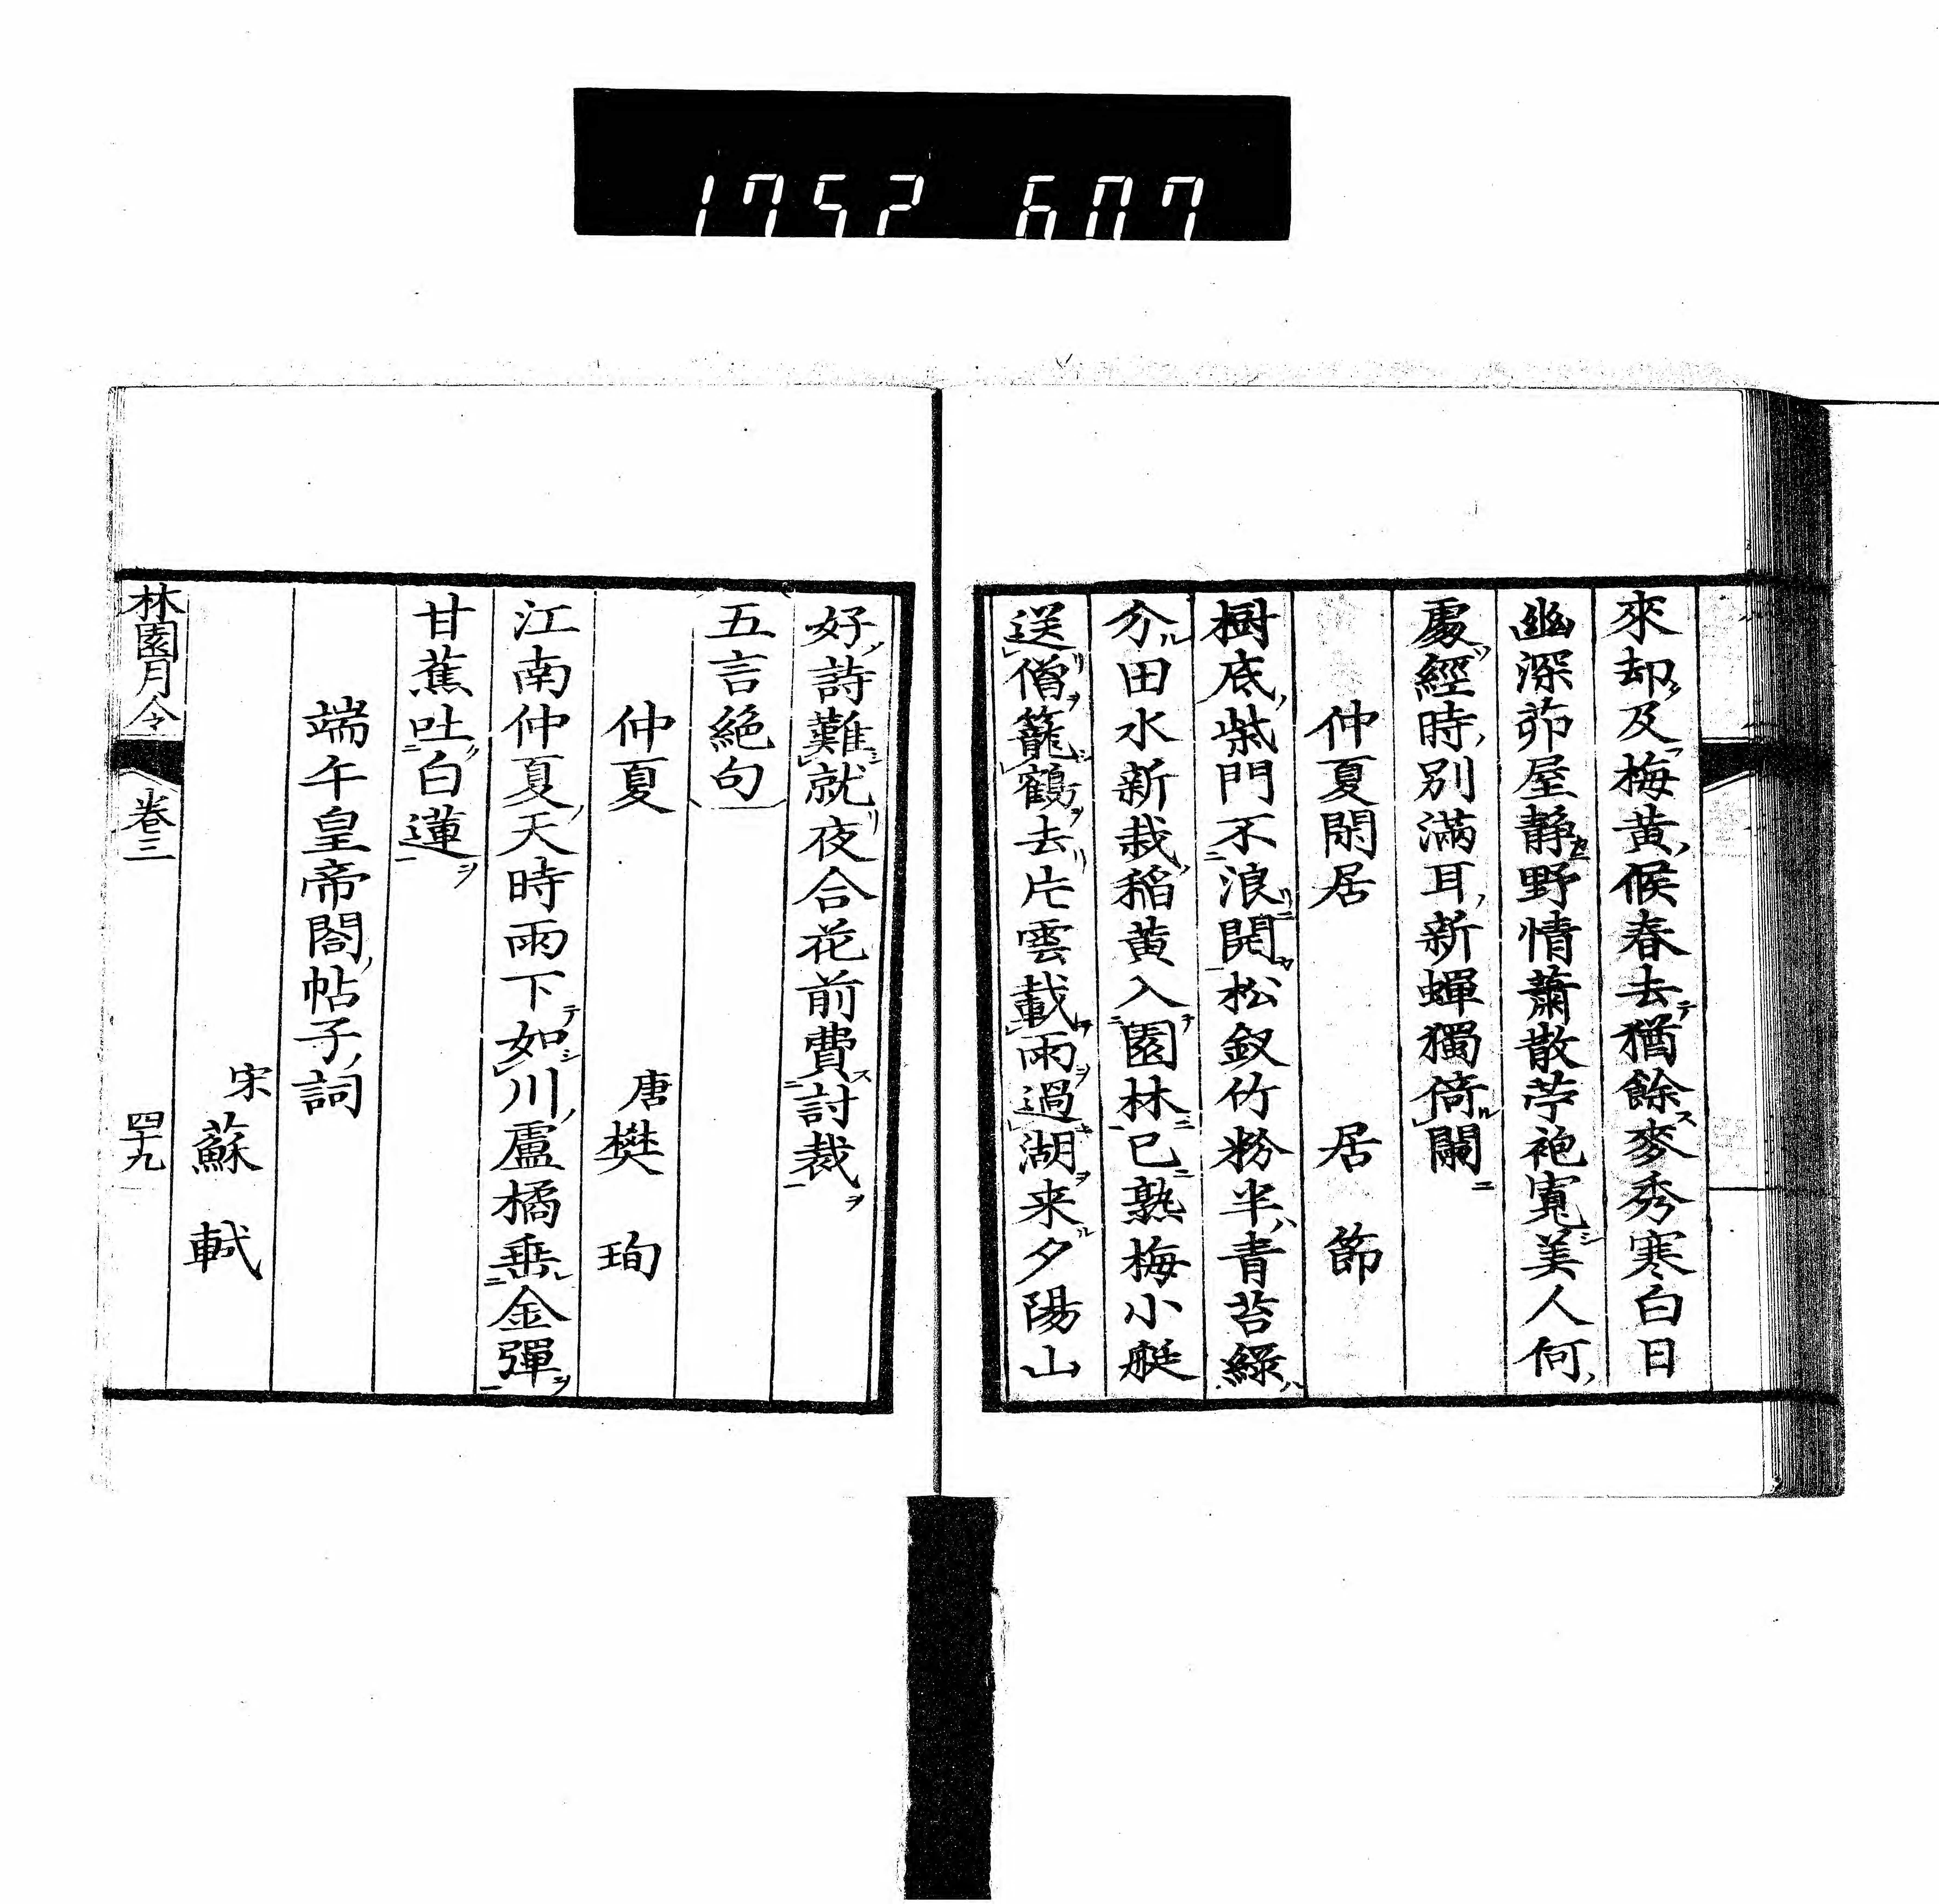 1752 607
來却及梅黄候春去猶餘麥秀寒白日
幽深茆屋靜野情蕭散苧袍寬美人何
處經時別滿耳新蟬獨倚闌
仲夏閑居 居 節
樹底柴門不浪開松釵竹粉半青苔緑
分田水新栽稻黄入園林已熟梅小艇
送僧籠鶴去片雲載雨過湖来夕陽山
好詩難就夜合花前費討裁
五言絕句
仲夏 唐 樊 珣
江南仲夏天時雨下如川盧橘垂金彈
甘蕉吐白蓮
端午皇帝閤帖子詞
宋 蘇 軾
林園月令 卷三 四十九